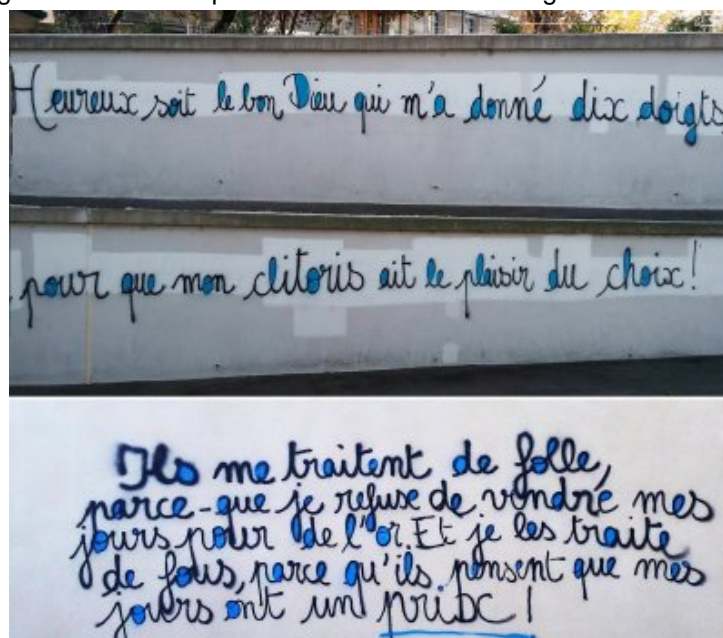 Heureux soit le bon Dieu qui m'a donné dix doigts
pour que mon clitoris ait le plaisir du choix!
Ils me traitent de folle,
parce-que je refuse de vendre mes
jours pour de l'or. Et je les traite
de fous, parce qu'ils pensent que mes
jours ont un prix!